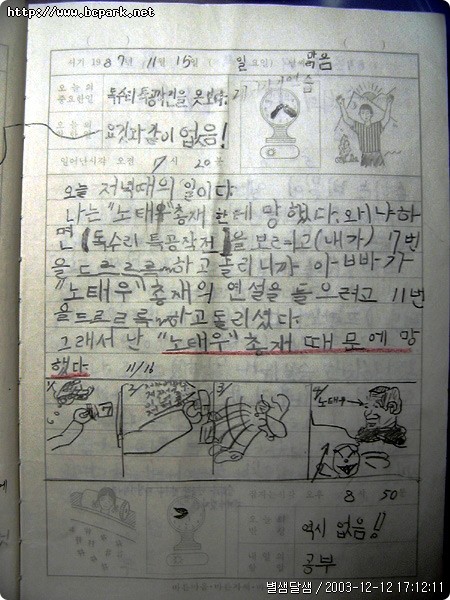 http://www.bcpark.net
서기 1987년 11월 15일 일요일 맑음
오늘의 중요한일
독수리 특공작전을 못보다.
요것과 같이 없음!
일어난시각 오전 7시 20분
오늘 저녁때의 일이다
나는 "노태우" 총재 한테 망했다. 왜냐하
면 【독수리 특공작저】을 보려고(내가) 7번
을 드르르르 하고 돌리니까 아빠가
"노태우" 총재의 연설을 들으려고 11번
을 드르르륵 하고 돌리셨다.
그래서 난 "노태우" 총재 때문에 망
했다. 11/16
1/ 7
2/
3/
4/ 노태우
8시 50분
역시 없음!!
공부
별샘달샘 / 2003-12-12 17:12:11